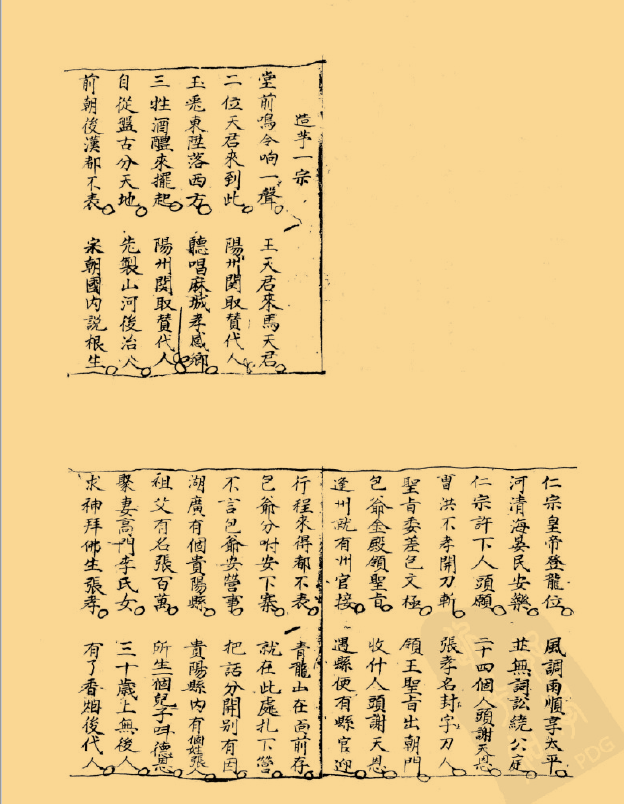 造 一宗
堂前鳴令响一聲 王天君來馬天君
二位天君來到此 陽州関取賛代人
玉兎東陞落西方 聽唱麻城孝感鄉
三牲酒醴來擺起 陽州関取賛代人
自從盤古分天地 先製山河後治人
前朝後漢都不表 宋朝國内説根生
仁宗皇帝登龍位 風調雨順享太平
河清海晏民安樂 並無詞訟繞公庭
仁宗許下人頭願 二十四個人頭謝天恩
曹洪不孝開刀斬 張孝名封字刀人
聖旨委差包文極 領王聖旨出朝門
包爺金殿領聖旨 收什人頭謝天恩
逢州就有州官接 遇縣便有縣官迎
行程來得都不表 青龍山在面前存
包爺分咐安下寨 就在此處扎下營
不言包爺安營事 把話分開別有因
湖廣有個貴陽縣 貴陽縣内有個姓張人
祖父有名張百萬 所生一個兒子叫德恩
娶妻高門李氏女 三十歲上無後人
求神拜佛生張孝 有了香烟後代人
PDG